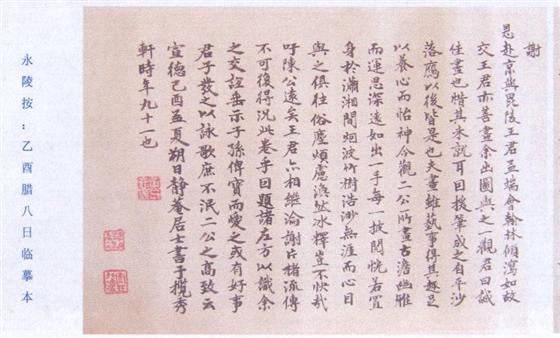 谢
赴京與毘陵王君孟端會翰林傾瀉如故
交王君亦善畫余出圖與之一觀君曰誠
佳畫也惜其未就耳因援筆成之自平沙
落鴈以後皆是也夫畫雖藝事得其趣足
以養心而怡神今觀二公所畫古澹幽雅
而運思深遠如出一手每一披閱恍若置
身於瀟湘間烟波竹樹浩渺無涯而心目
與之俱往俗塵煩慮渙然冰釋豈不快哉
吁陳公遠矣王君亦相繼淪謝片楮流傳
不可復得况此卷乎因題諸左方以識余
之交誼垂示子孫俾寶而愛之或有好事
君子發之以詠歌庶不泯二公之高致云
宣德己酉孟夏朔日靜菴居士書于攬秀
軒時年九十一也
永陵按：乙酉腊八日临摹本